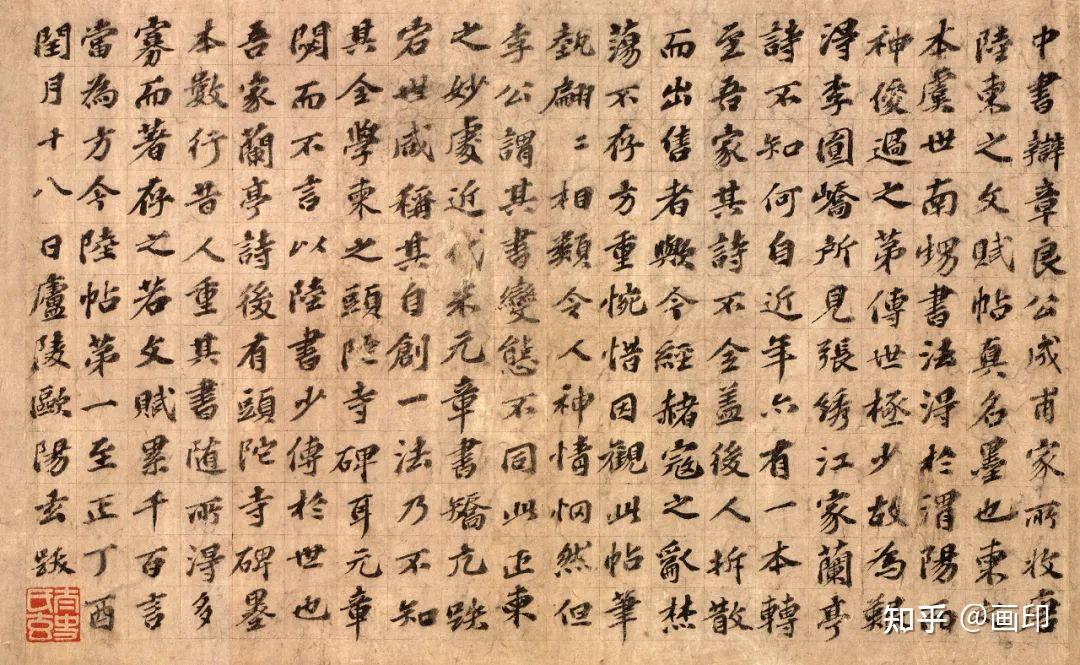 中書辯章良公成甫家所收唐
陸柬之文賦帖真名墨也柬
本虞世南甥書法得於渭陽而
神俊過之第傳世極少故為難
得李圓嶠所見張綉江家蘭亭
詩不知何自近年亦有一本轉
至吾家其詩不全盖後人拆散
而出售者歟今經赭寇之亂焚
蕩不存方重惋惜因觀此帖筆
埶翩二相類令人神情惘然但
李公謂其書變態不同此正柬
之妙處近代米元章書矯亢跌
宕世咸稱其自創一法乃不知
其全學柬之頭陀寺碑耳元章
闕而不言以陸書少傳於世也
吾家蘭亭詩後有頭陀寺碑墨
本數行昔人重其書随所得多
寡而著存之若文賦累千百言
當為方今陸帖第一至正丁酉
閏月十八日廬陵歐陽玄跋
知乎 @画印